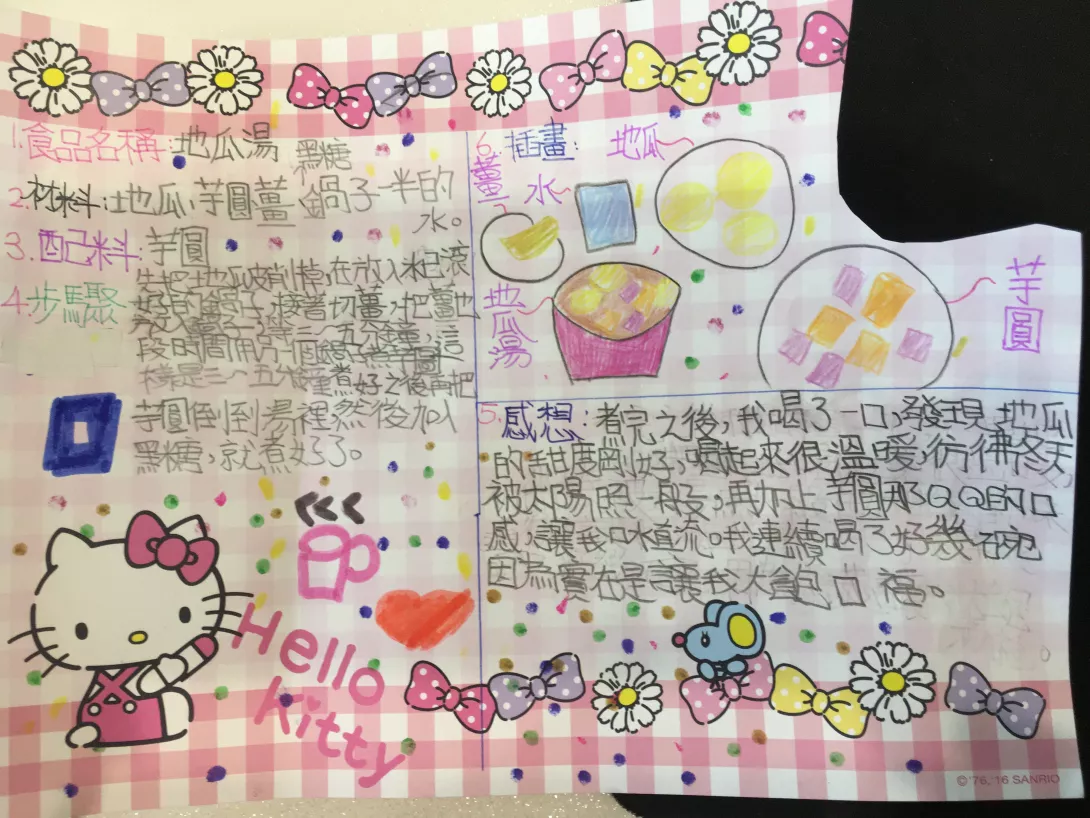 1.食品名稱:地瓜湯
黑糖
2.材料:地瓜、芋圓薑、鍋子一半的
水。
3.配料:芋圓
4.步驟
先把地瓜皮削掉,在放入水已滾
好的鍋子,接著切薑,把薑也
放入鍋子,等三~五分鐘,這
段時間用另一個鍋子煮芋圓
樣是三~五分鐘煮好之後再把
芋圓倒到湯裡然後加入
黑糖,就煮好了。
6.插畫:
地瓜
薑
水
地瓜湯
芋圓
5.感想:煮完之後,我喝了一口,發現,地瓜
的甜度剛好,喝起來很溫暖,彷彿冬天
被太陽照一般,再加上芋圓那QQ的口
感,讓我口水直流。我連續喝了好幾碗
因為實在是讓我大飽口福。
Hello
Kitty
©'76,'16 SANRIO